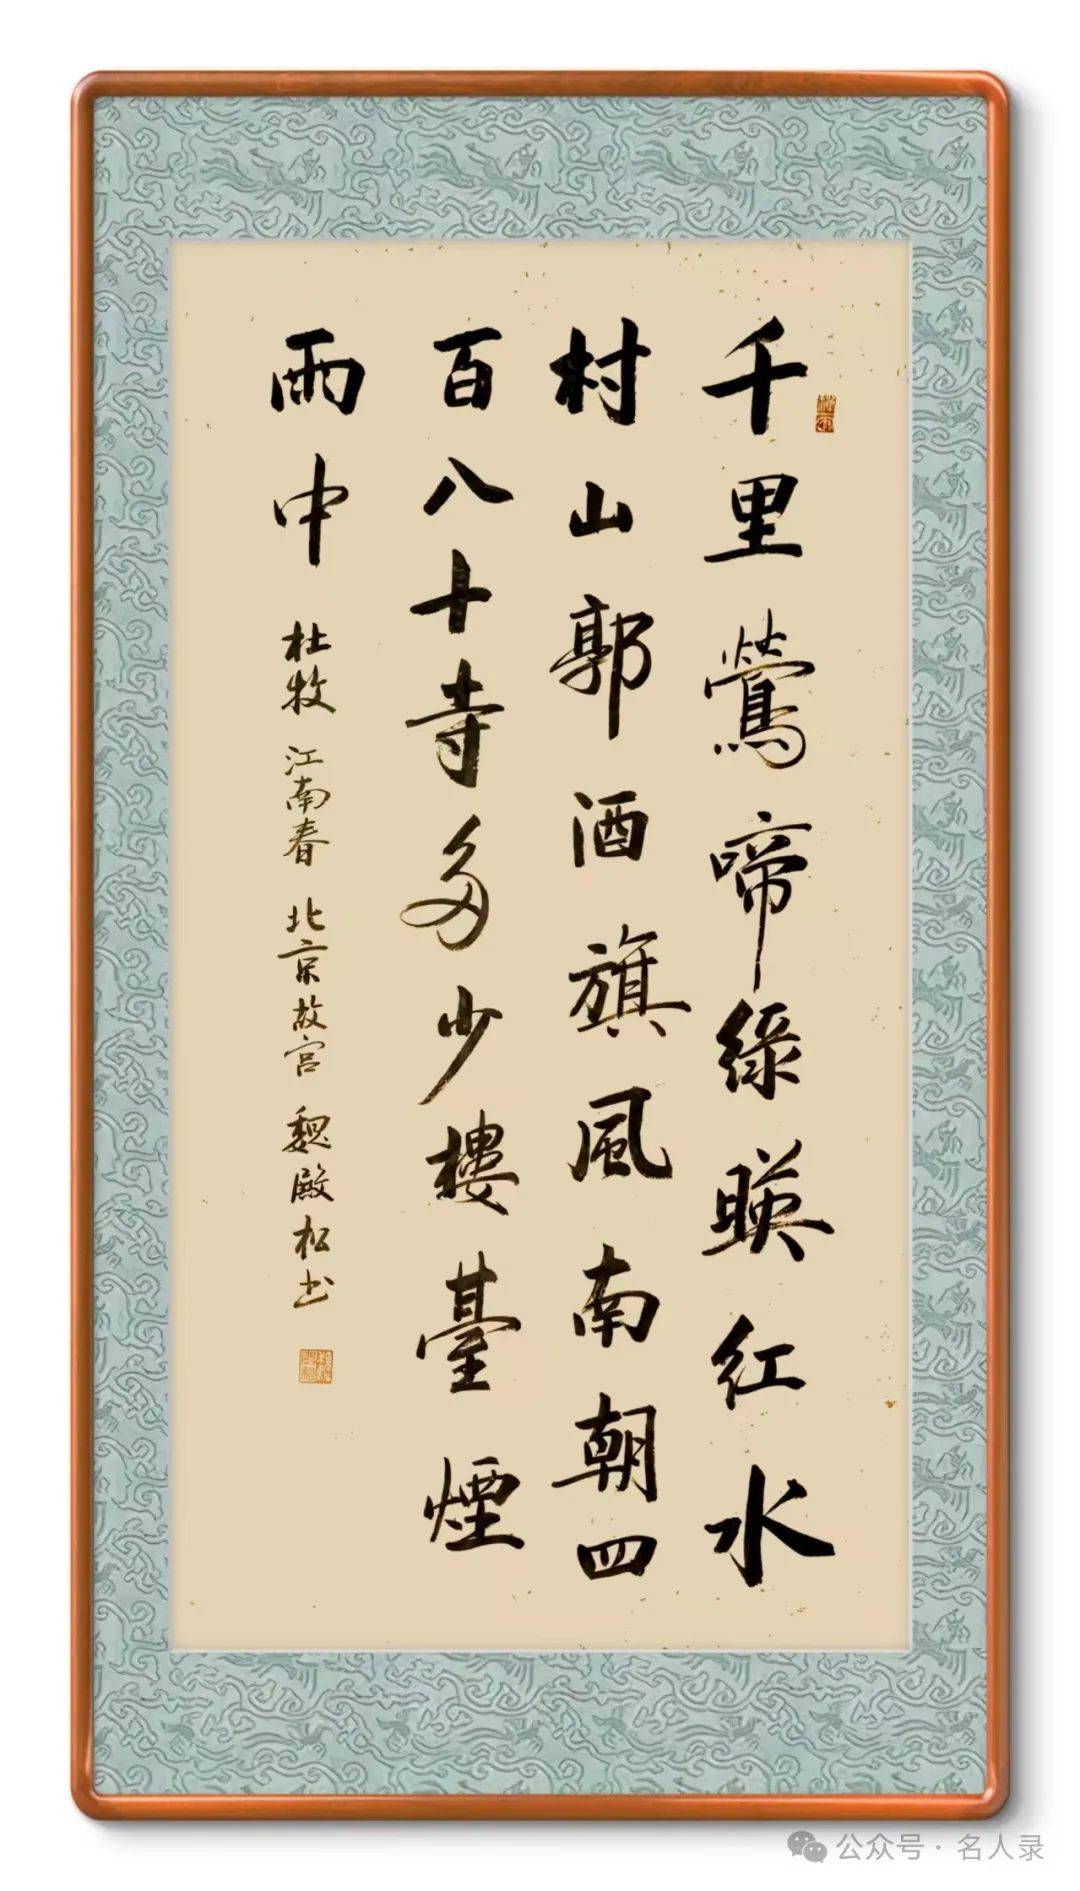 千里鶯啼綠暎红水
村山郭酒旗風南朝四
百八十寺多少樓臺煙
雨中
杜牧 江南春 北京故宫 魏殿松书
公众号·名人录